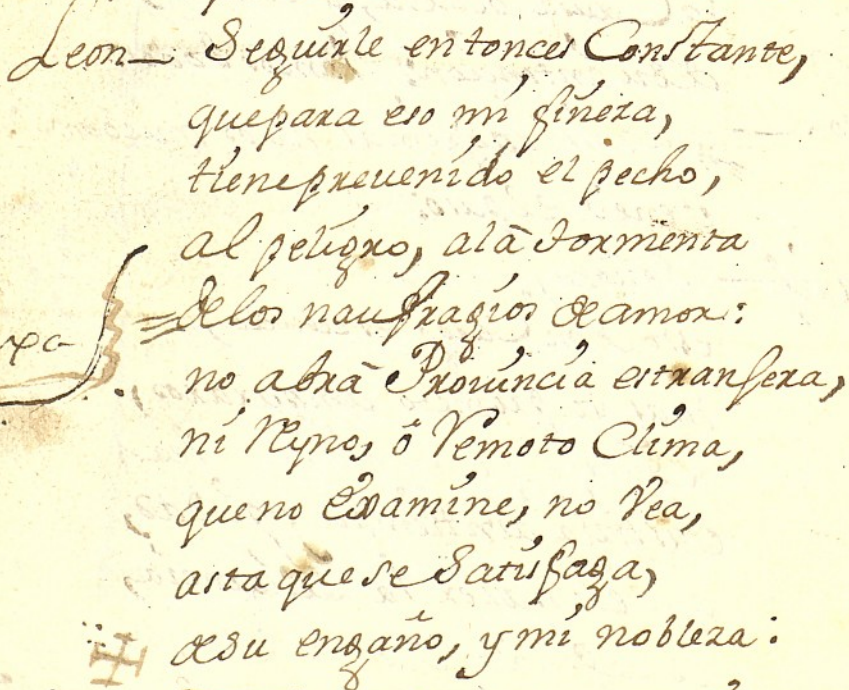 Leon— Seguirle entonces Constante,
quepara eso mi fineza,
tieneprevenido el pecho,
al peligro, alà tormenta
delos naufragios de amor:
no abrà Provincia estranjera,
ni Reyno, ô Remoto Clima,
queno examine, no Vea,
asta que se Satisfaga,
desu engaño, y mi nobleza: